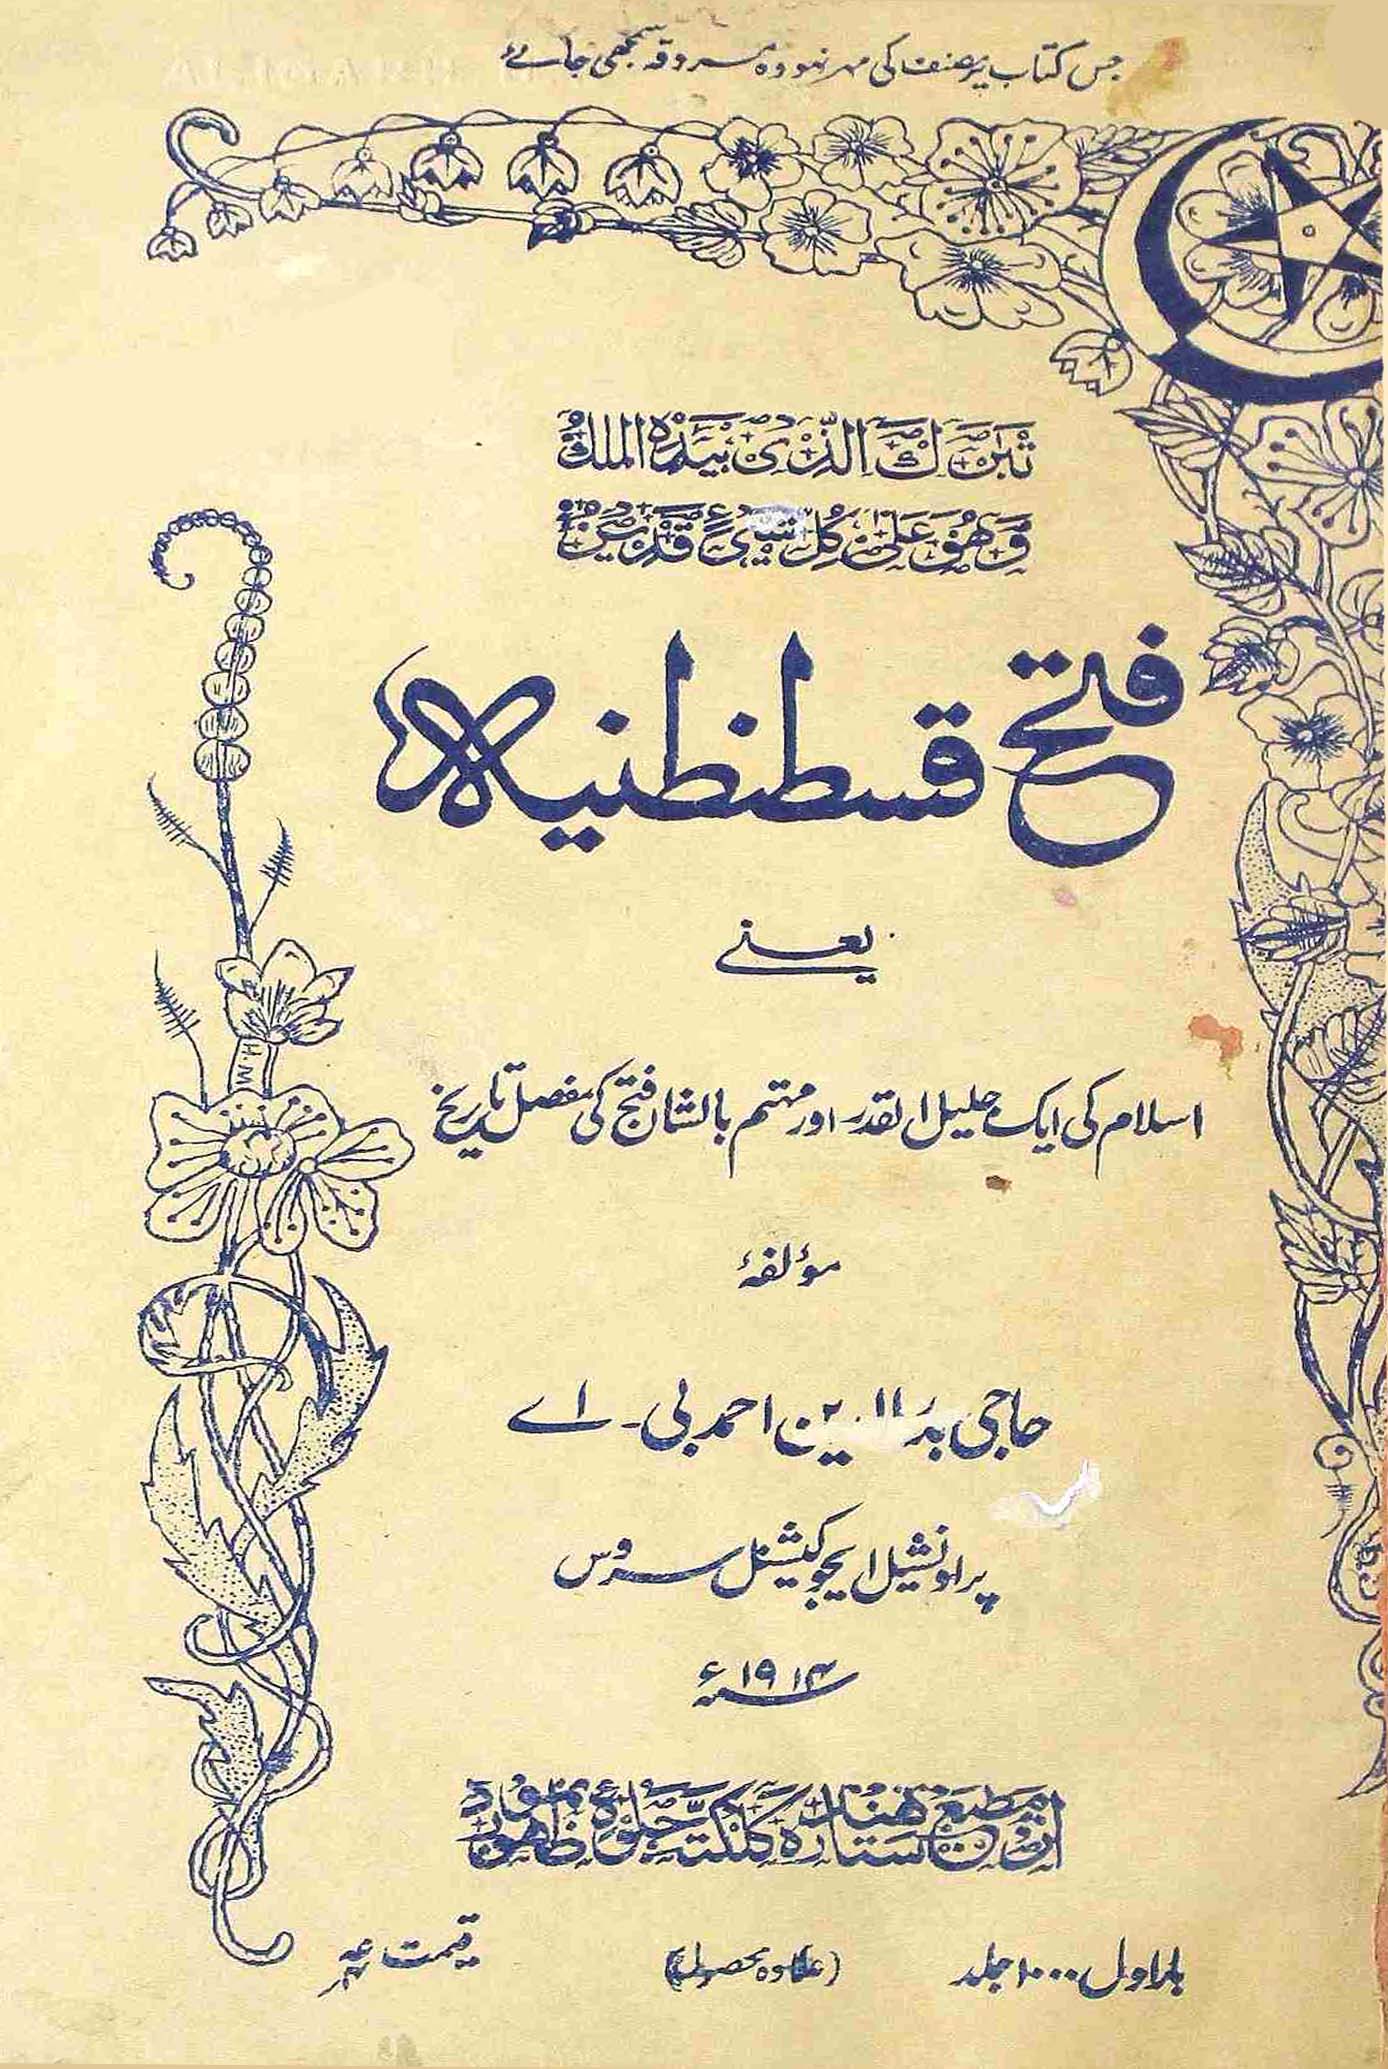 جس کتاب پر مصنف کی مہر نہو وہ مسروقہ سمجھی جائے
تَبٰرَكَ الَّذِیْ بِیَدِهِ الْمُلْكُ
وَهُوَ عَلٰی كُلِّ شَیْءٍ قَدِیْرٌ
فتح قسطنطنیہ
یعنے
اسلام کی ایک جلیل القدر اور مہتم بالشان فتح کی مفصل تاریخ
مؤلفۂ
حاجی بدرالدین احمد بی۔ اے
پراونشیل ایجوکیشنل سروس
۱۹۱۴ء
مطبع ستارہ ہند کلکتہ جلوۂ ظہور
بار اول ۱۰۰۰ جلد
(علاوہ محصول)
قیمت
H.M